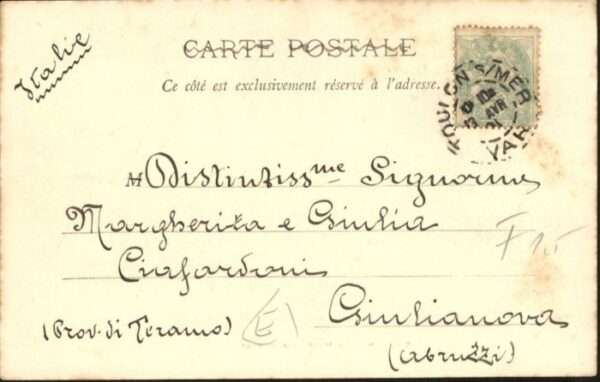 Italie
CARTE POSTALE
Ce côté est exclusivement réservé à l'adresse.
TOULON S/MER
10E
13 AVR
01
VAR
Distintissme Signorine
Margherita e Giulia
Ciafardoni
F 15
Giulianova
(Prov. di Teramo)
(E)
(Abruzzi)